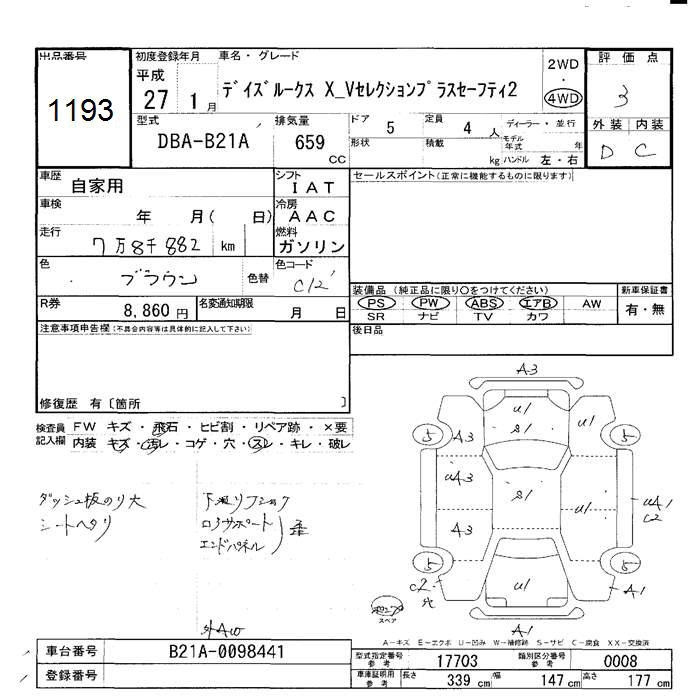 出品番号
1193
初度登録年月
平成
27 1月
車名・グレード
デイズルークス X_Vセレクションプラスセーフティ2
2WD
・
4WD
評価点
3
外装 内装
D C
型式
DBA-B21A
排気量
659
cc
ドア 5
定員 4 人
ディーラー・並行
形状
積載 kg
モデル年式 年
ハンドル 左・右
車歴 自家用
シフト IAT
車検 年 月( 日)
冷房 AAC
走行 7万8千882 km
燃料 ガソリン
色 ブラウン 色替
色コード C12
R券 8,860円
名変通知期限 月 日
セールスポイント(正常に機能するものに限ります)
装備品 (純正品に限り○をつけてください)
PS PW ABS エアB AW
SR ナビ TV カワ
新車保証書
有・無
後日品
注意事項申告欄(不具合内容等は具体的に記入して下さい)
修復歴 有〔箇所 〕
検査員記入欄
FW キズ・飛石・ヒビ割・リペア跡・×要
内装 キズ・汚レ・コゲ・穴・スレ・キレ・破レ
ダッシュ板のり大
シートヘタリ
ロアサポート
エンドパネル
歪
外AW
A3
U1
U1
S1
5
5
A3
UA3
S1
UA1
C2
A3
5
5
C2
穴
U1
A1
A1
スペア
A-キズ E-エクボ U-凹み W-補修跡 S-サビ C-腐食 XX-交換済
車台番号 B21A-0098441
登録番号
型式指定番号 参考 17703
類別区分番号 参考 0008
車庫証明用 参考
長さ 339 cm
幅 147 cm
高さ 177 cm